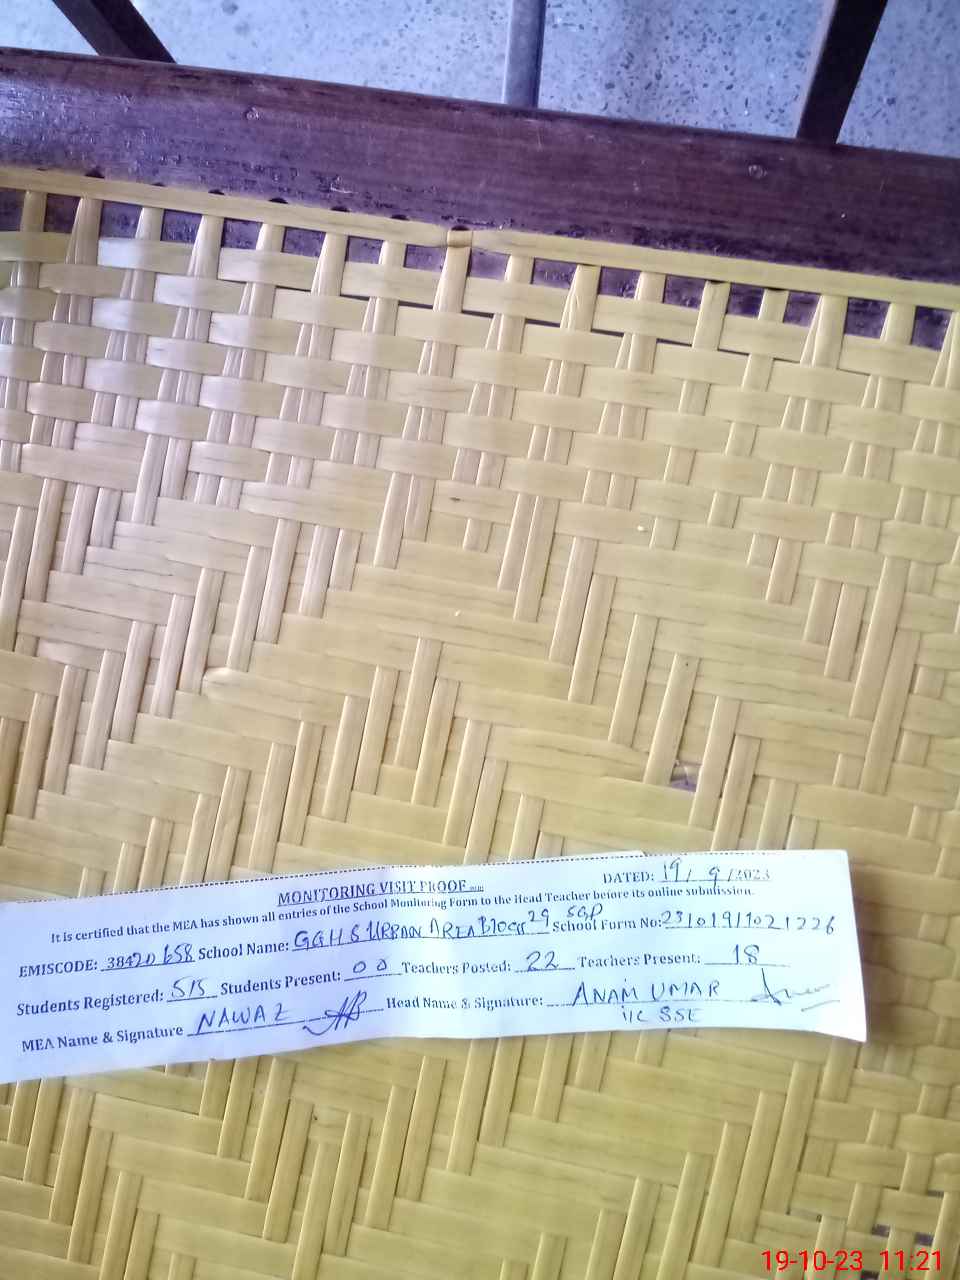 MONITORING VISIT PROOF
DATED: 19/ 9 /2023
It is certified that the MEA has shown all entries of the School Monitoring Form to the Head Teacher before its online submission.
EMISCODE: 38420658 School Name: GGHS URBAN AREA Block 29 SGD School Form No: 2310191021226
Students Registered: 515 Students Present: 00 Teachers Posted: 22 Teachers Present: 18
MEA Name & Signature NAWAZ Head Name & Signature: ANAM UMAR
I/C SSE
19-10-23 11:21